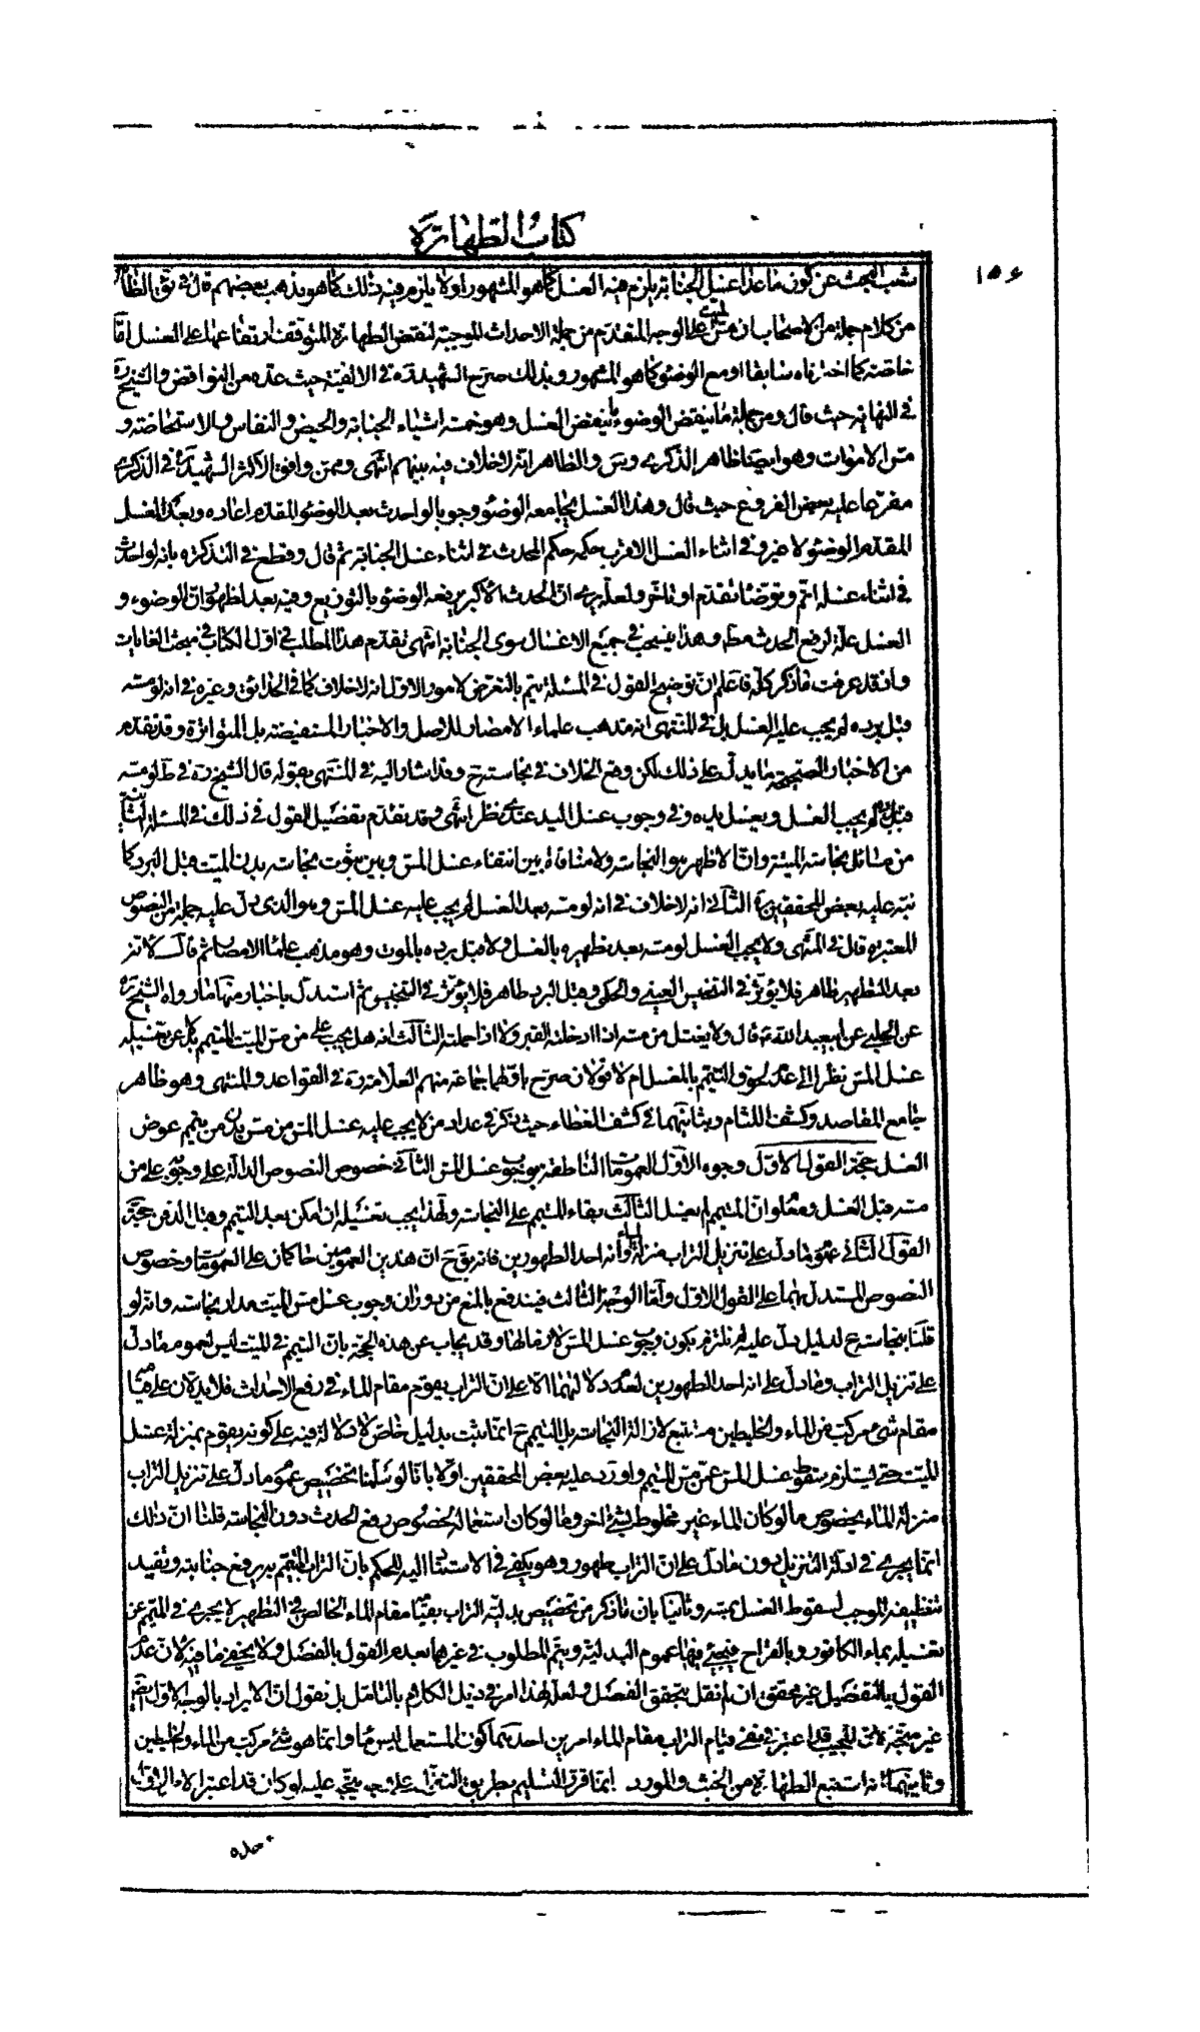 كتاب الطهارة
١٥٤
شعب البحث عن كون ماعدا غسل الجنابة يلزم فيه الغسل كما هو المشهور اولا يلزم فيه ذلك كما هو مذهب بعضهم قال في ق الظاهر
من كلام جملة من الاصحاب ان مس الميت على الوجه المتقدم من جملة الاحداث الموجبة لنقض الطهارة المتوقف ارتفاعها على الغسل امّا
خاصة كما اخترناه سابقا او مع الوضوء كما هو المشهور وبذلك صرح الشهيد ره في الالفية حيث عده من النواقض والشيخ ره
في النهاية حيث قال ومن جملة ما ينقض الوضوء ما ينقض الغسل وهو خمسة اشياء الجنابة والحيض والنفاس والاستحاضة و
مس الاموات وهو ايضا ظاهر الذكرى و والظاهر انه لا خلاف فيه بينهم انتهى وممن وافق الاكثر الشهيد ره في الذكرى
مفرعا عليه بعض الفروع حيث قال وهذا الغسل يجامعه الوضوء وجوبا لو احدث بعد الوضوء المقدم اعاده وبعد الغسل
المقدم الوضوء لا غير وفي اثناء الغسل الاقرب حكمه حكم المحدث في اثناء غسل الجنابة ثم قال وقطع في التذكرة بانه لو احدث
في اثناء غسله اتم وتوضأ تقدم او تأخر ولعله يرى ان الحدث الاكبر يرفعه الوضوء بالتوزيع وفيه بعد لظهور ان الوضوء و
الغسل علة لرفع الحدث مطلقا وهذا ينسحب في جميع الاغسال سوى الجنابة انتهى تقدم هذا المطلب في اول الكتاب في مبحث الغايات
واذ قد عرفت ما ذكر كله فاعلم ان توضيح القول في المسئلة يتم بالتعرض لامور الاول انه لا خلاف كما في الحدائق وغيره في انه لو مسه
قبل برده لم يجب عليه الغسل بل في المنتهى انه مذهب علماء الامصار للاصل والاخبار المستفيضة بل المتواترة وقد تقدم
من الاخبار الصحيحة ما يدل على ذلك لكن وقع الخلاف في نجاسته ح وقد اشار اليه في المنتهى بقوله قال الشيخ ره في ط لو مسه
قبل برده لم يجب الغسل ويغسل يده وفي وجوب غسل اليد عندي نظر انتهى وقد تقدم تفصيل القول في ذلك في المسئلة الثانية
من مسائل نجاسة الميتة وان الاظهر هو النجاسة ولا منافاة بين انتفاء غسل المس وبين ثبوت نجاسة بدن الميت قبل البرد كما
نبه عليه بعض المحققين ره الثاني انه لا خلاف في انه لو مسه بعد الغسل لم يجب عليه غسل المس وهو الذي دل عليه جملة من النصوص
المعتبرة قال في المنتهى ولا يجب الغسل لو مسه بعد تطهيره بالغسل ولا قبل برده بالموت وهو مذهب علماء الامصار ثم قال لانه
بعد التطهير طاهر فلا يؤثر في التنجيس العيني والحكمي وقبل البرد طاهر فلا يؤثر في التنجيس ثم استدل باخبار منها ما رواه الشيخ ره
عن الحلبي عن ابي عبد الله ع قال ولا يغتسل من مسه اذا ادخله القبر ولا اذا حمله الثالث انه هل يجب على من مس الميت المتيمم بدلا عن تغسيله
غسل المس نظرا الى عدم لحوق التيمم بالغسل ام لا قولان صرح باولهما جماعة منهم العلامة ره في القواعد والمنتهى وهو ظاهر
جامع المقاصد وكشف اللثام وبثانيهما في كشف الغطاء حيث ذكر في عداد من لا يجب عليه غسل المس من مس بدن من يتمم عوض
الغسل حجة القول الاول وجوه الاول العمومات الناطقة بوجوب غسل المس الثاني خصوص النصوص الدالة على وجوبه على من
مسه قبل الغسل ومعلوم ان المتيمم لم يغسل الثالث بقاء المتيمم على النجاسة ولهذا يجب تغسيله ان امكن بعد التيمم وقبل الدفن حجة
القول الثاني عموم ما دل على تنزيل التراب منزلة الماء وأنه احد الطهورين فانه يوضح ان هذين العمومين حاكمان على العمومات وخصوص
النصوص المستدل بهما على القول الاول وأما الوجه الثالث فيندفع بالمنع من دوران وجوب غسل مس الميت مدار نجاسته وانه لو
قلنا بنجاسته ح لدليل دل عليه لم نلتزم بكون وجوب غسل المس لازما لها وقد يجاب عن هذه الحجة بان التيمم في الميت ليس لعموم ما دل
على تنزيل التراب وما دل على انه احد الطهورين لعدم دلالتهما الا على ان التراب يقوم مقام الماء في رفع الاحداث فلا يدلان على قيامه
مقام شئ مركب من الماء والخليطين مستتبع لازالة النجاسة بل التيمم ح انما يثبت بدليل خاص لا دلالة فيه على كونه يقوم بمنزلة غسل
الميت حتى يستلزم سقوط غسل المس عمن مس المتيمم واورد عليه بعض المحققين اولا بانا لو سلمنا تخصيص عموم ما دل على تنزيل التراب
منزلة الماء بخصوص ما لو كان الماء غير مخلوط بشئ اخر وما لو كان استعماله لخصوص رفع الحدث دون النجاسة قلنا ان ذلك
انما يجرى في ادلة التنزيل دون ما دل على ان التراب طهور وهو يكفي في الاستناد اليه للحكم بان التراب المتيمم به يرفع جنابته وتفيد
تنظيفه الموجب لسقوط الغسل بمسه وثانيا بان ما ذكر من تخصيص بدلية التراب بقيامه مقام الماء الخالص في التطهير لا يجرى في المتيمم عن
تغسيله بماء الكافور وبالقراح فيجئ فيها عموم البدلية ويتم المطلوب في غيرها بعدم القول بالفصل ولا يخفى ما فيه لان عدم
القول بالتفصيل غير محقق ان لم نقل بتحقق الفصل ولعله لهذا امر في ذيل الكلام بالتامل بل نقول ان الايراد بالوجه الاول ايضا
غير متجه لان المجيب قد اعتبر في نفي قيام التراب مقام الماء امرين احدهما كون المستعمل ليس ماء وانما هو شئ مركب من الماء والخليطين
وثانيهما انه استتبع الطهارة من الخبث والمورد انما قرر التسليم بطريق التنزل على شئ يتجه عليه لو كان قد اعتبر